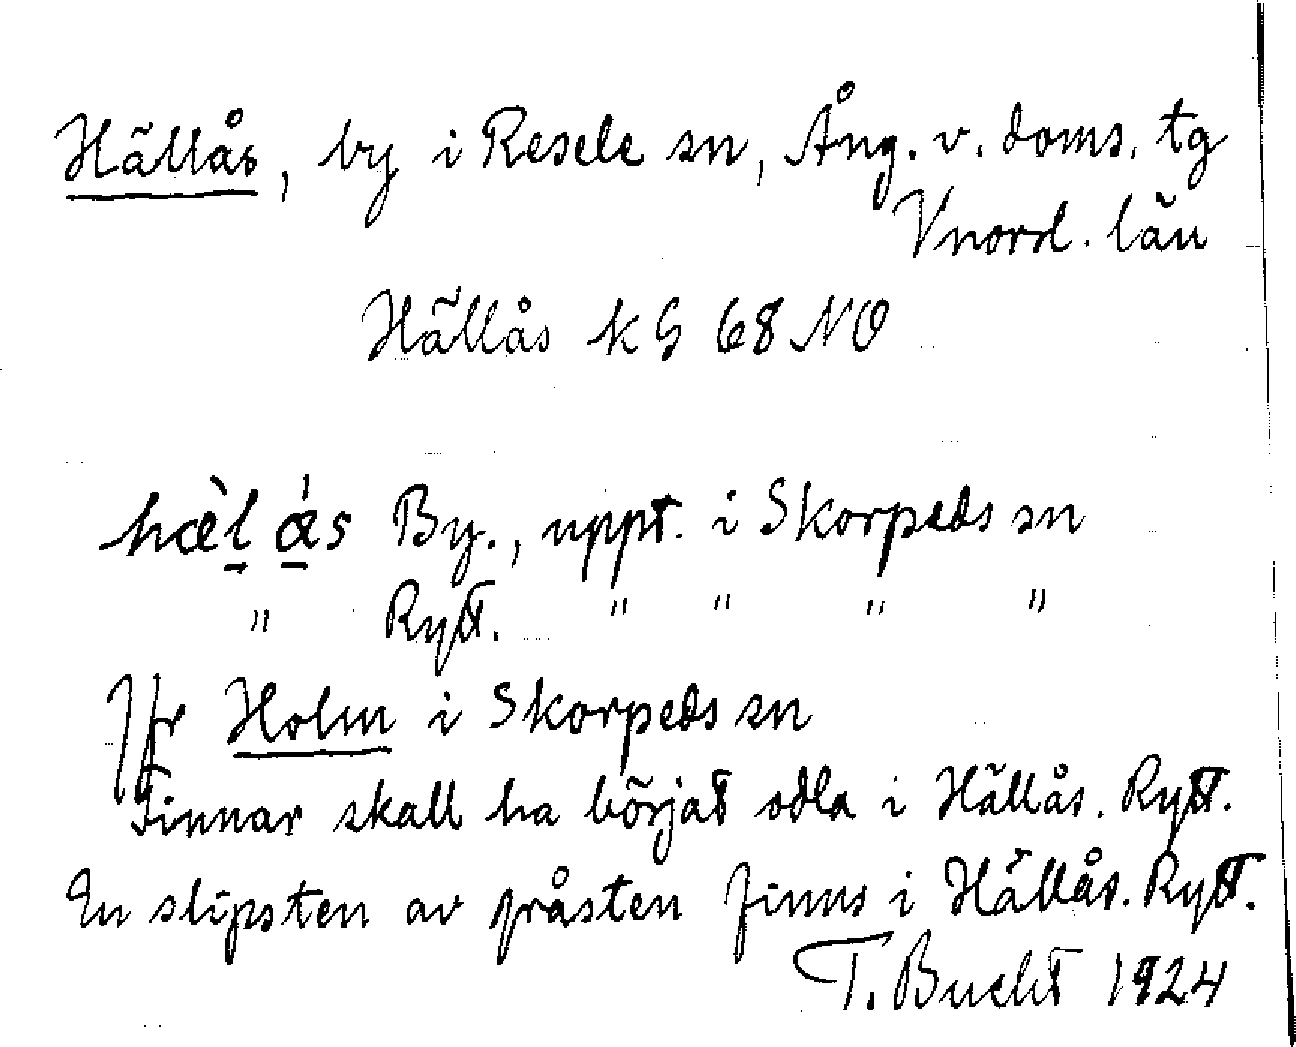 Hällås, by i Resele sn, Ång. v. doms. tg
Vnorrl. län
Hällås kG 68 NO
hæ̀l ás By., uppt. i Skorpeds sn
" Rytt. " " " "
Jfr Holm i Skorpeds sn
Finnar skall ha börjat odla i Hällås. Rytt.
En slipsten av gråsten finns i Hällås. Rytt.
T. Bucht 1924